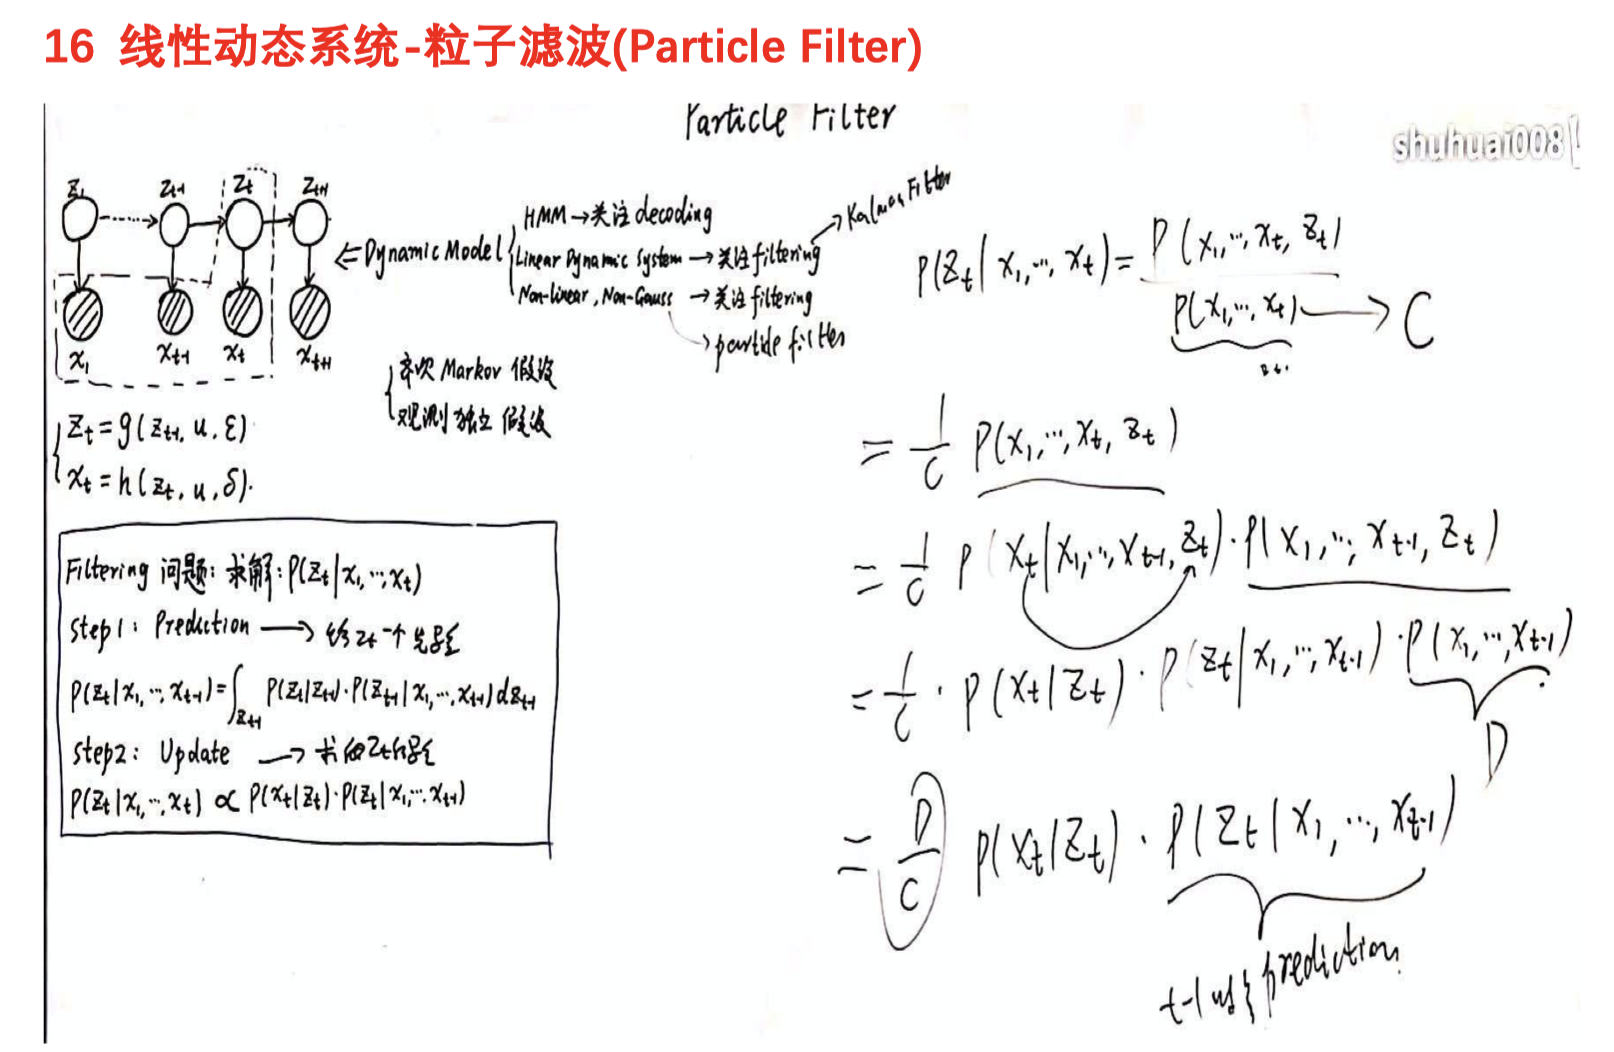 16 线性动态系统-粒子滤波(Particle Filter)
Particle Filter
shuhuai008
z₁ zₜ₋₁ zₜ zₜ₊₁
x₁ xₜ₋₁ xₜ xₜ₊₁
⇐ Dynamic Model
HMM → 关注 decoding
Linear Dynamic System → 关注 filtering → Kalman Filter
Non-linear, Non-Gauss → 关注 filtering
→ particle filter
齐次 Markov 假设
观测独立假设
zₜ = g(zₜ₋₁, u, ε)
xₜ = h(zₜ, u, δ).
Filtering 问题: 求解: P(zₜ|x₁, ⋯, xₜ)
Step1: Prediction → 给 zₜ 一个先验
P(zₜ|x₁, ⋯, xₜ₋₁) = ∫_{zₜ₋₁} P(zₜ|zₜ₋₁)·P(zₜ₋₁|x₁, ⋯, xₜ₋₁) dzₜ₋₁
Step2: Update → 求 zₜ 后验
P(zₜ|x₁, ⋯, xₜ) ∝ P(xₜ|zₜ)·P(zₜ|x₁, ⋯, xₜ₋₁)
P(zₜ|x₁, ⋯, xₜ) = P(x₁, ⋯, xₜ, zₜ) / P(x₁, ⋯, xₜ) → C
= 1/C P(x₁, ⋯, xₜ, zₜ)
= 1/C P(xₜ|x₁, ⋯, xₜ₋₁, zₜ)·P(x₁, ⋯, xₜ₋₁, zₜ)
= 1/C · P(xₜ|zₜ)·P(zₜ|x₁, ⋯, xₜ₋₁)·P(x₁, ⋯, xₜ₋₁)
D
= D/C P(xₜ|zₜ)·P(zₜ|x₁, ⋯, xₜ₋₁)
t-1 时刻 prediction